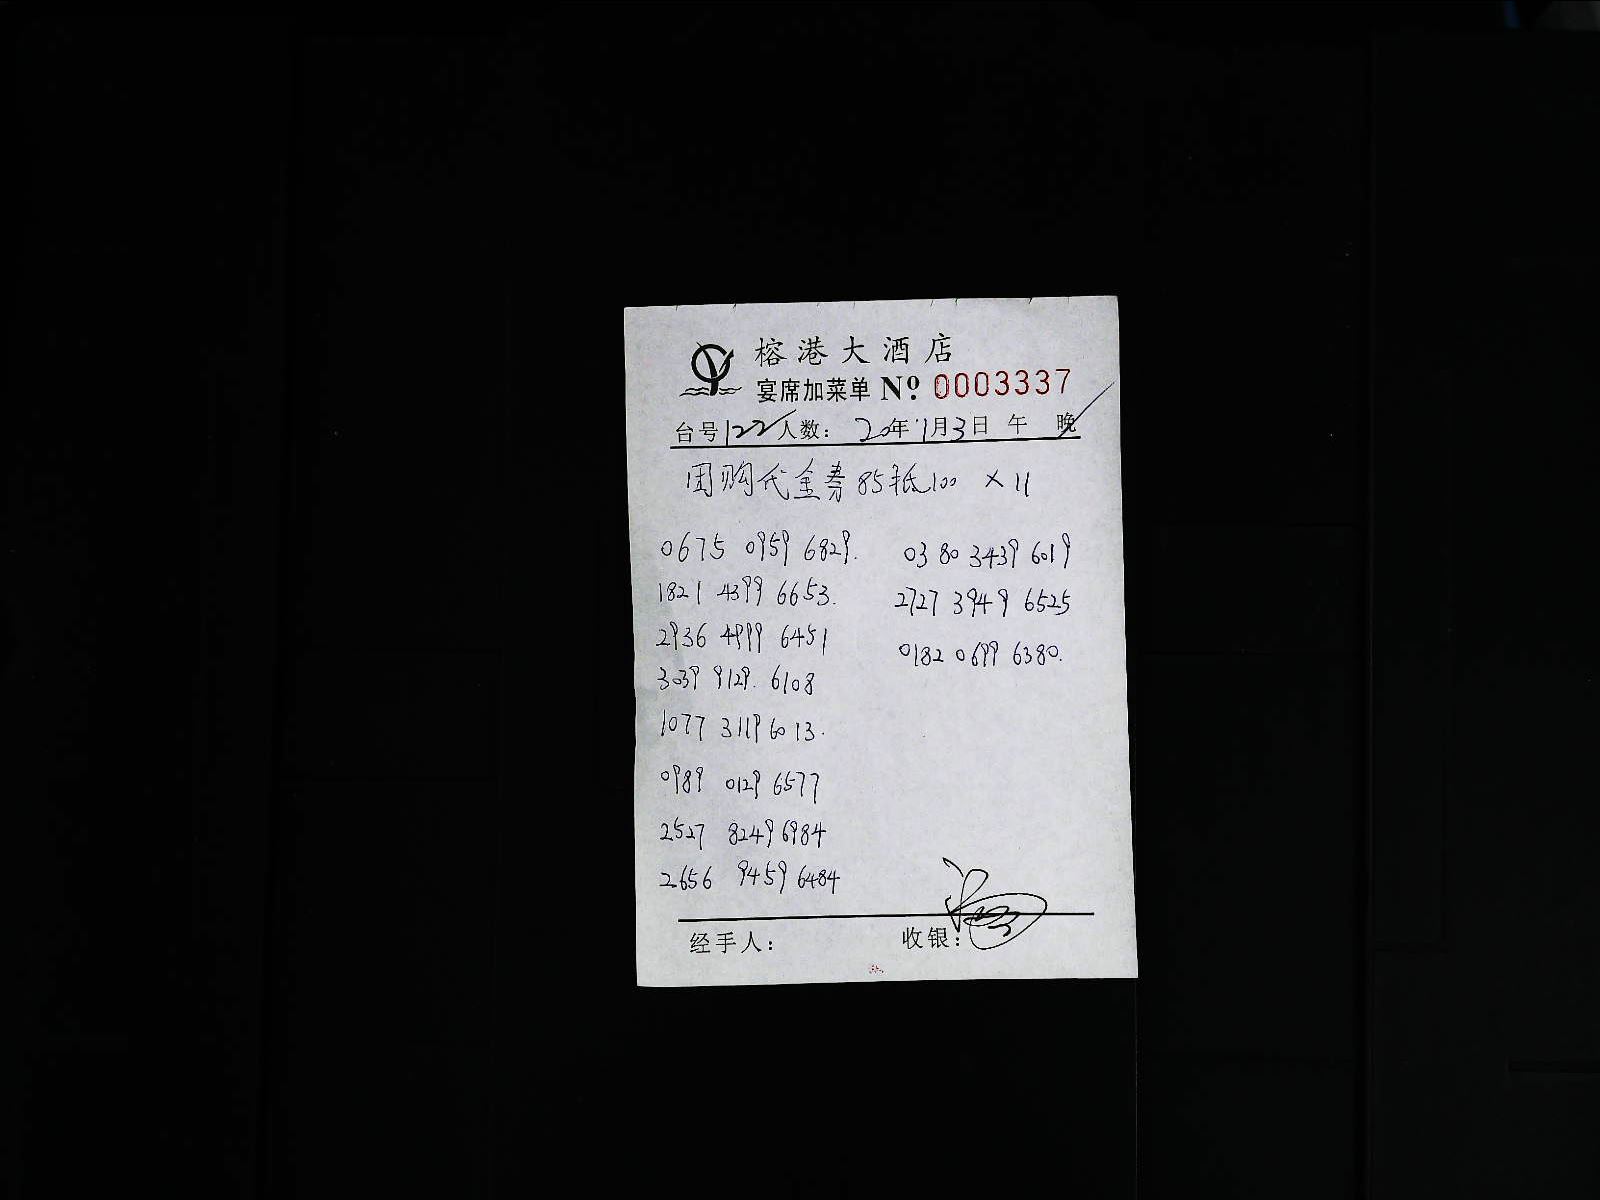 榕港大酒店
宴席加菜单 Nº 0003337
台号122人数： 20年11月3日 午 晚
团购代金券85抵100 ×11
0675 0959 6829.
1821 4399 6653.
2936 4999 6451
3039 9129. 6108
1077 3119 6013.
0989 0129 6577
2527 8249 6984
2656 9459 6484
0380 3439 6019
2727 3949 6525
0182 0699 6380.
经手人： 收银：